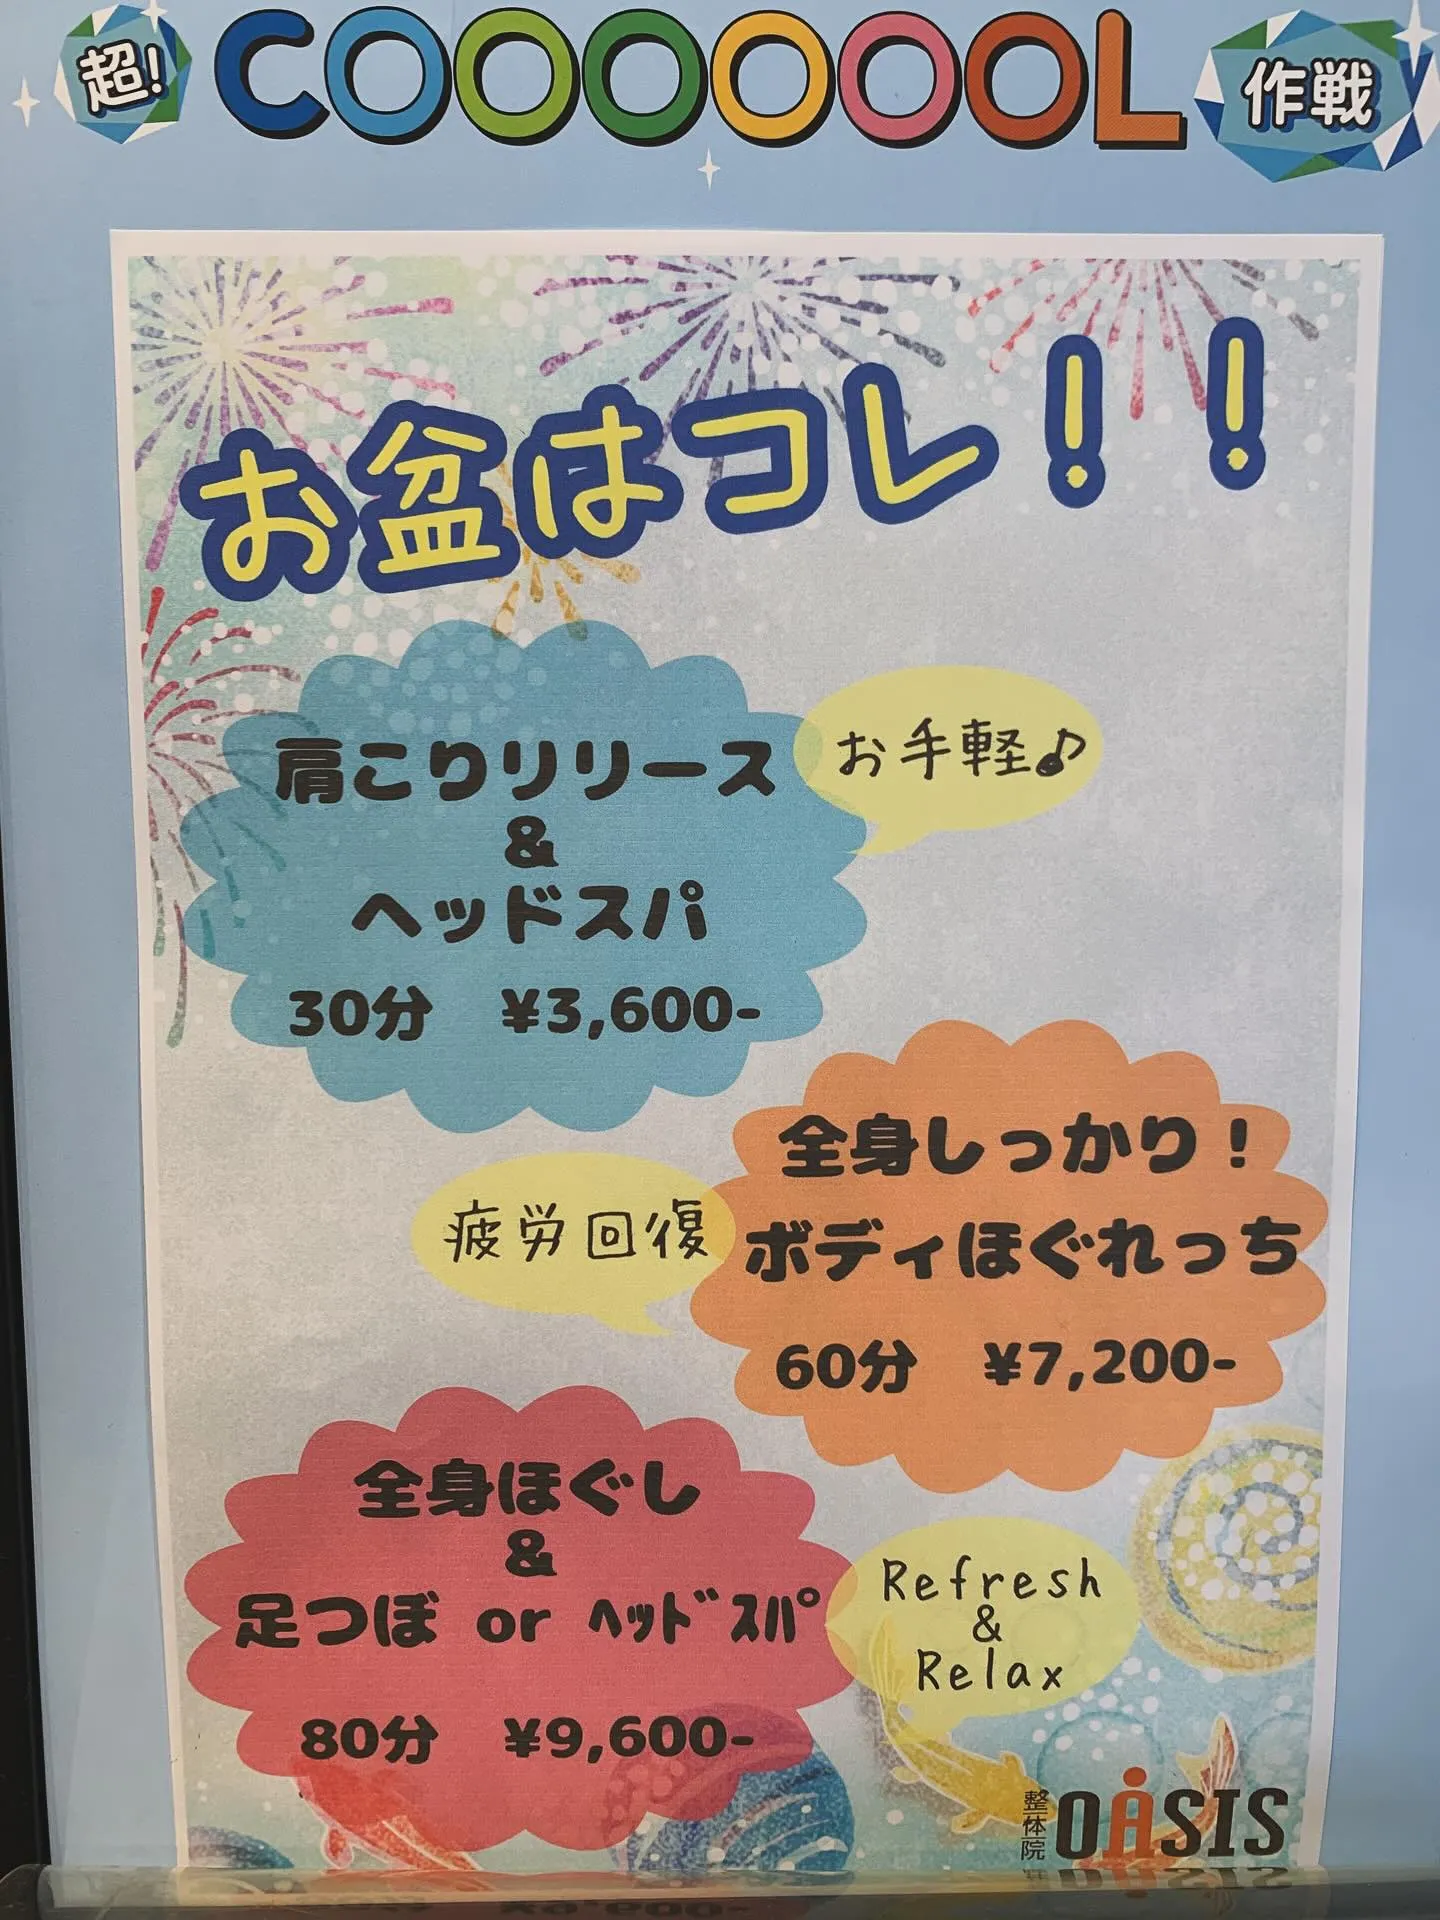 超!
COOOOOOL
作戦
お盆はコレ！！
肩こりリリース
&
ヘッドスパ
30分　¥3,600-
お手軽♪
全身しっかり！
ボディほぐれっち
60分　¥7,200-
疲労回復
全身ほぐし
&
足つぼ or ﾍｯﾄﾞｽﾊﾟ
80分　¥9,600-
Refresh
&
Relax
整体院
OASIS